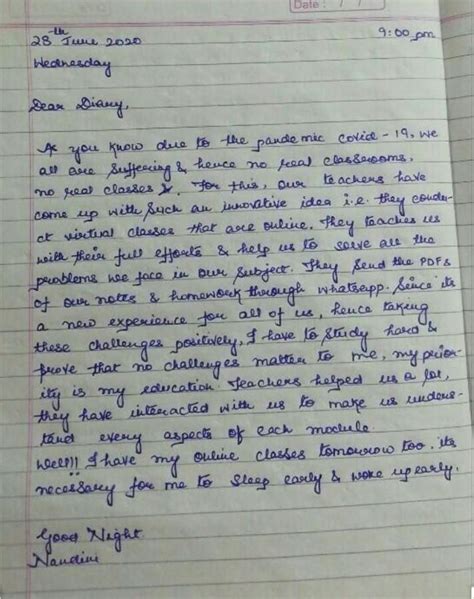 Date : / /
28th June 2020 9:00 pm
Wednesday
Dear Diary,
As you know due to the pandemic covid - 19, we
all are suffering & hence no real classrooms,
no real classes &. For this, our teachers have
come up with such an innovative idea i.e. they condu-
ct virtual classes that are online. They teaches us
with their full efforts & help us to solve all the
problems we face in our subject. They send the PDFs
of our notes & homework through whatsapp. Since its
a new experience for all of us, hence taking
these challenges positively, I have to study hard &
prove that no challenges matter to me, my prior-
ity is my education. Teachers helped us a lot,
they have interacted with us to make us unders-
tand every aspects of each module.
Well!! I have my online classes tomorrow too. its
necessary for me to sleep early & woke up early.
Good Night
Nandini